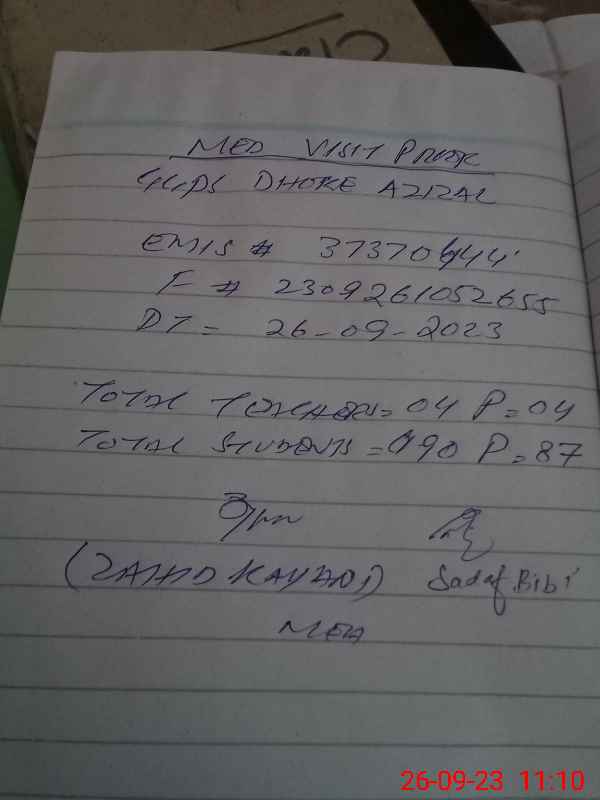 MED VISIT PROOF
GGPS DHOKE AZIZAL
EMIS # 37370644
F # 2309261052655
DT = 26-09-2023
TOTAL TEACHERS = 04 P = 04
TOTAL STUDENTS = 90 P = 87
(ZAHID KAYANI) Sadaf Bibi
MEA
26-09-23 11:10